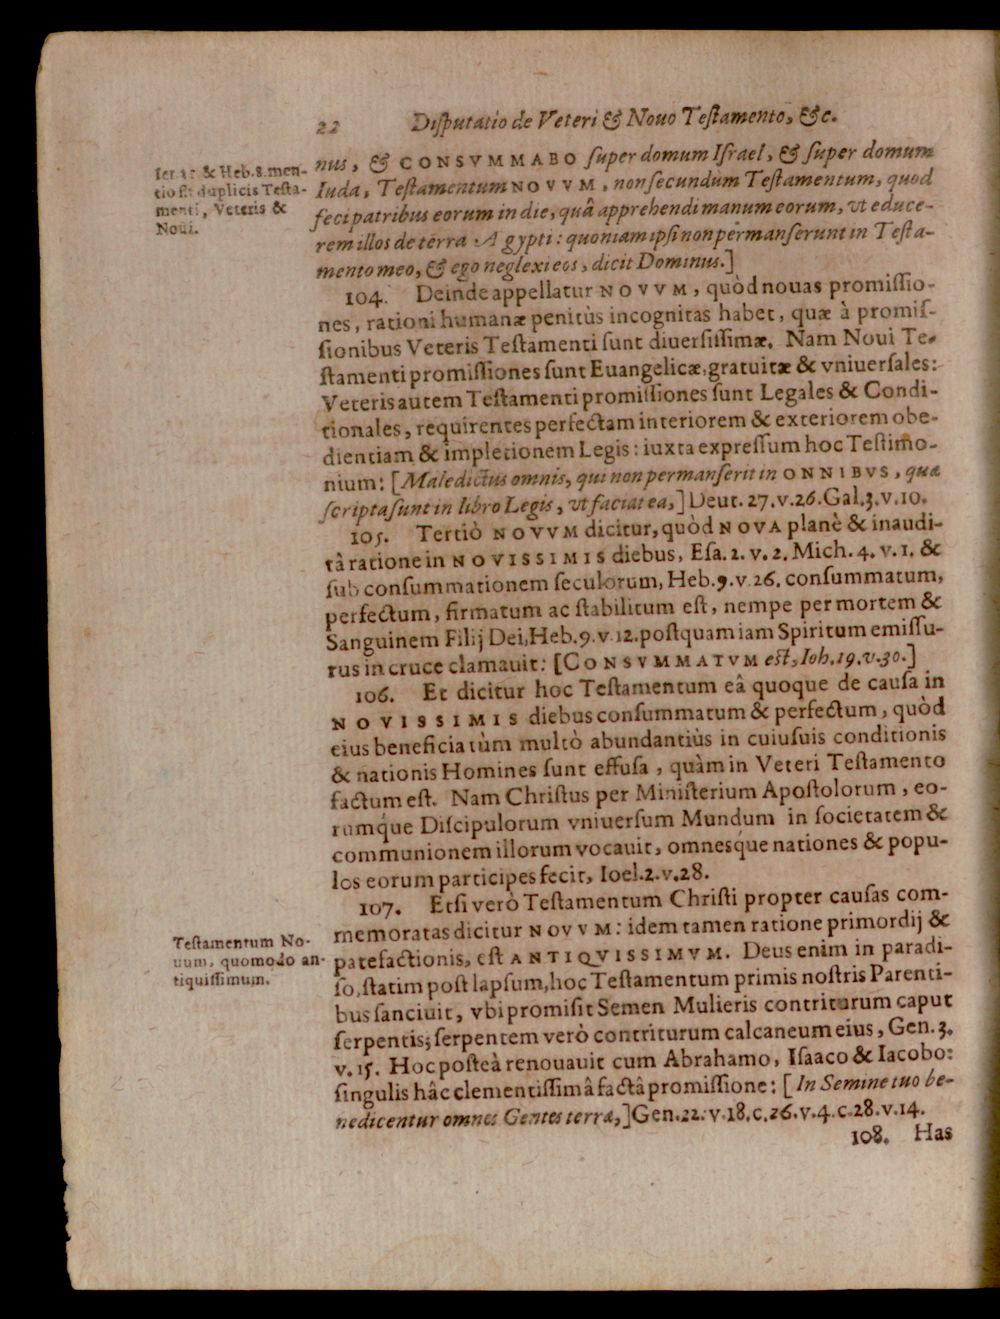 22 Diſputatio de Veteri & Nouo Teſtamento, &c.
Ier. 31 & Heb. 8. men-
tio fit duplicis Teſta-
menti, Veteris &
Noui.
nus, & CONSVMMABO ſuper domum Iſrael, & ſuper domum
Iuda, Teſtamentum NOVVM, non ſecundum Teſtamentum, quod
feci patribus eorum in die, quâ apprehendi manum eorum, vt educe-
rem illos de terra Ægypti: quoniam ipſi non permanſerunt in Teſta-
mento meo, & ego neglexi eos, dicit Dominus.]
104. Deinde appellatur NOVVM, quòd nouas promiſſio-
nes, rationi humanæ penitùs incognitas habet, quæ à promiſ-
ſionibus Veteris Teſtamenti ſunt diuerſiſſimæ. Nam Noui Te-
ſtamenti promiſſiones ſunt Euangelicæ, gratuitæ & vniuerſales:
Veteris autem Teſtamenti promiſſiones ſunt Legales & Condi-
tionales, requirentes perfectam interiorem & exteriorem obe-
dientiam & impletionem Legis: iuxta expreſſum hoc Teſtimo-
nium: [Maledictus omnis, qui non permanſerit in ONNIBVS, quæ
ſcripta ſunt in libro Legis, vt faciat ea,] Deut. 27. v. 26. Gal. 3. v. 10.
105. Tertiò NOVVM dicitur, quòd NOVA planè & inaudi-
tâ ratione in NOVISSIMIS diebus, Eſa. 2. v. 2. Mich. 4. v. 1. &
ſub conſummationem ſeculorum, Heb. 9. v. 26. conſummatum,
perfectum, firmatum ac ſtabilitum eſt, nempe per mortem &
Sanguinem Filij Dei, Heb. 9. v. 12. poſtquam iam Spiritum emiſſu-
rus in cruce clamauit: [CONSVMMATVM eſt, Ioh. 19. v. 30.]
106. Et dicitur hoc Teſtamentum eâ quoque de cauſa in
NOVISSIMIS diebus conſummatum & perfectum, quòd
eius beneficia tùm multò abundantiùs in cuiuſuis conditionis
& nationis Homines ſunt effuſa, quàm in Veteri Teſtamento
factum eſt. Nam Chriſtus per Miniſterium Apoſtolorum, eo-
rumq́ue Diſcipulorum vniuerſum Mundum in ſocietatem &
communionem illorum vocauit, omneſq́ue nationes & popu-
los eorum participes fecit, Ioel. 2. v. 28.
107. Etſi verò Teſtamentum Chriſti propter cauſas com-
memoratas dicitur NOVVM: idem tamen ratione primordij &
Teſtamentum No-
uum, quomodo an-
tiquiſſimum.
patefactionis, eſt ANTIQVISSIMVM. Deus enim in paradi-
ſo, ſtatim poſt lapſum, hoc Teſtamentum primis noſtris Parenti-
bus ſanciuit, vbi promiſit Semen Mulieris contriturum caput
ſerpentis; ſerpentem verò contriturum calcaneum eius, Gen. 3.
v. 15. Hoc poſteà renouauit cum Abrahamo, Iſaaco & Iacobo:
ſingulis hâc clementiſſimâ factâ promiſſione: [In Semine tuo be-
nedicentur omnes Gentes terræ,] Gen. 22. v. 18. c. 26. v. 4. c. 28. v. 14.
108. Has